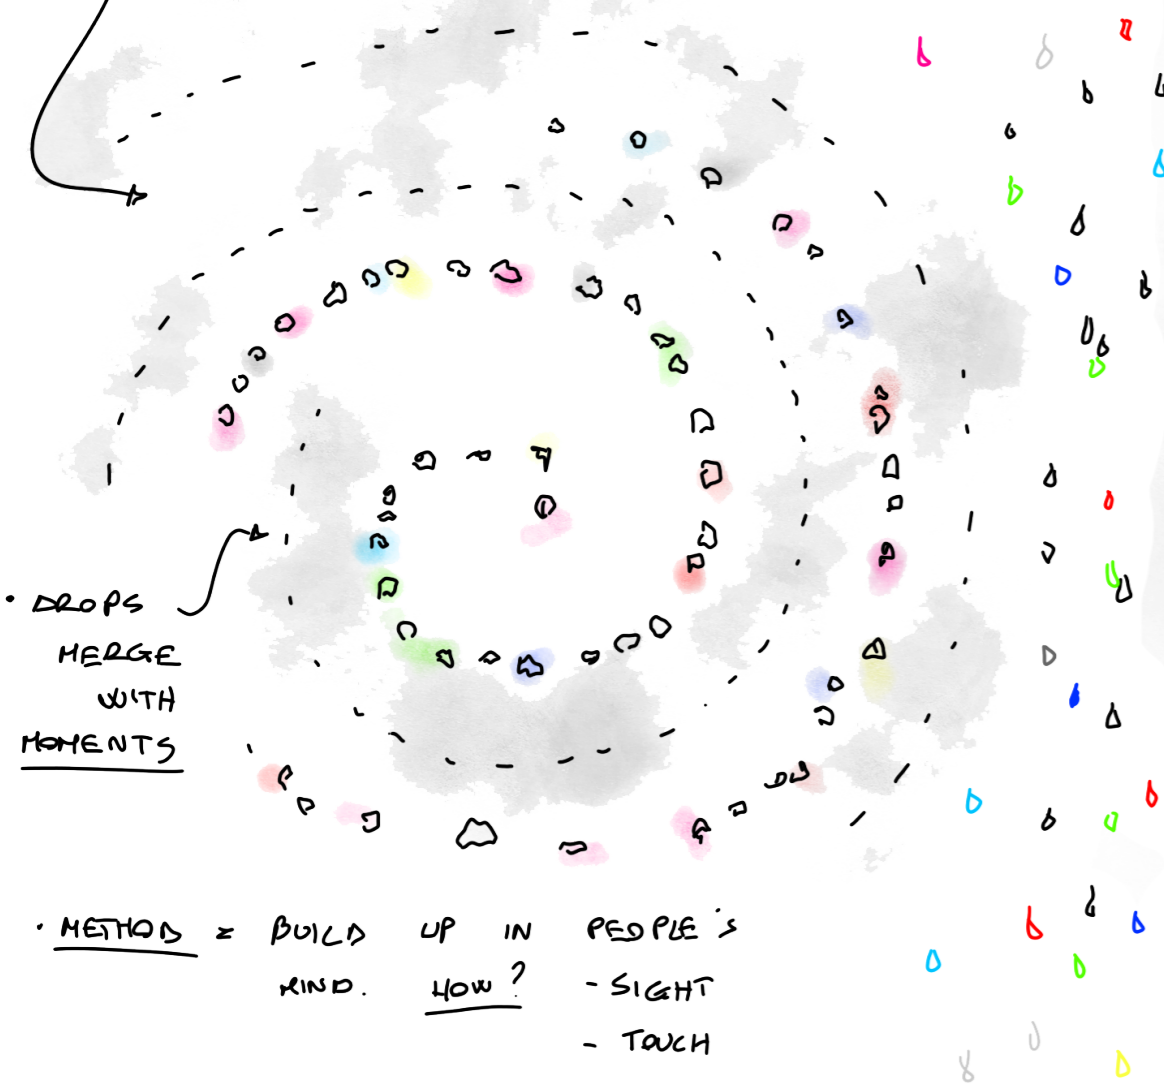 · DROPS
MERGE
WITH
MOMENTS
· METHOD = BUILD UP IN PEOPLE'S
MIND. HOW? - SIGHT
- TOUCH